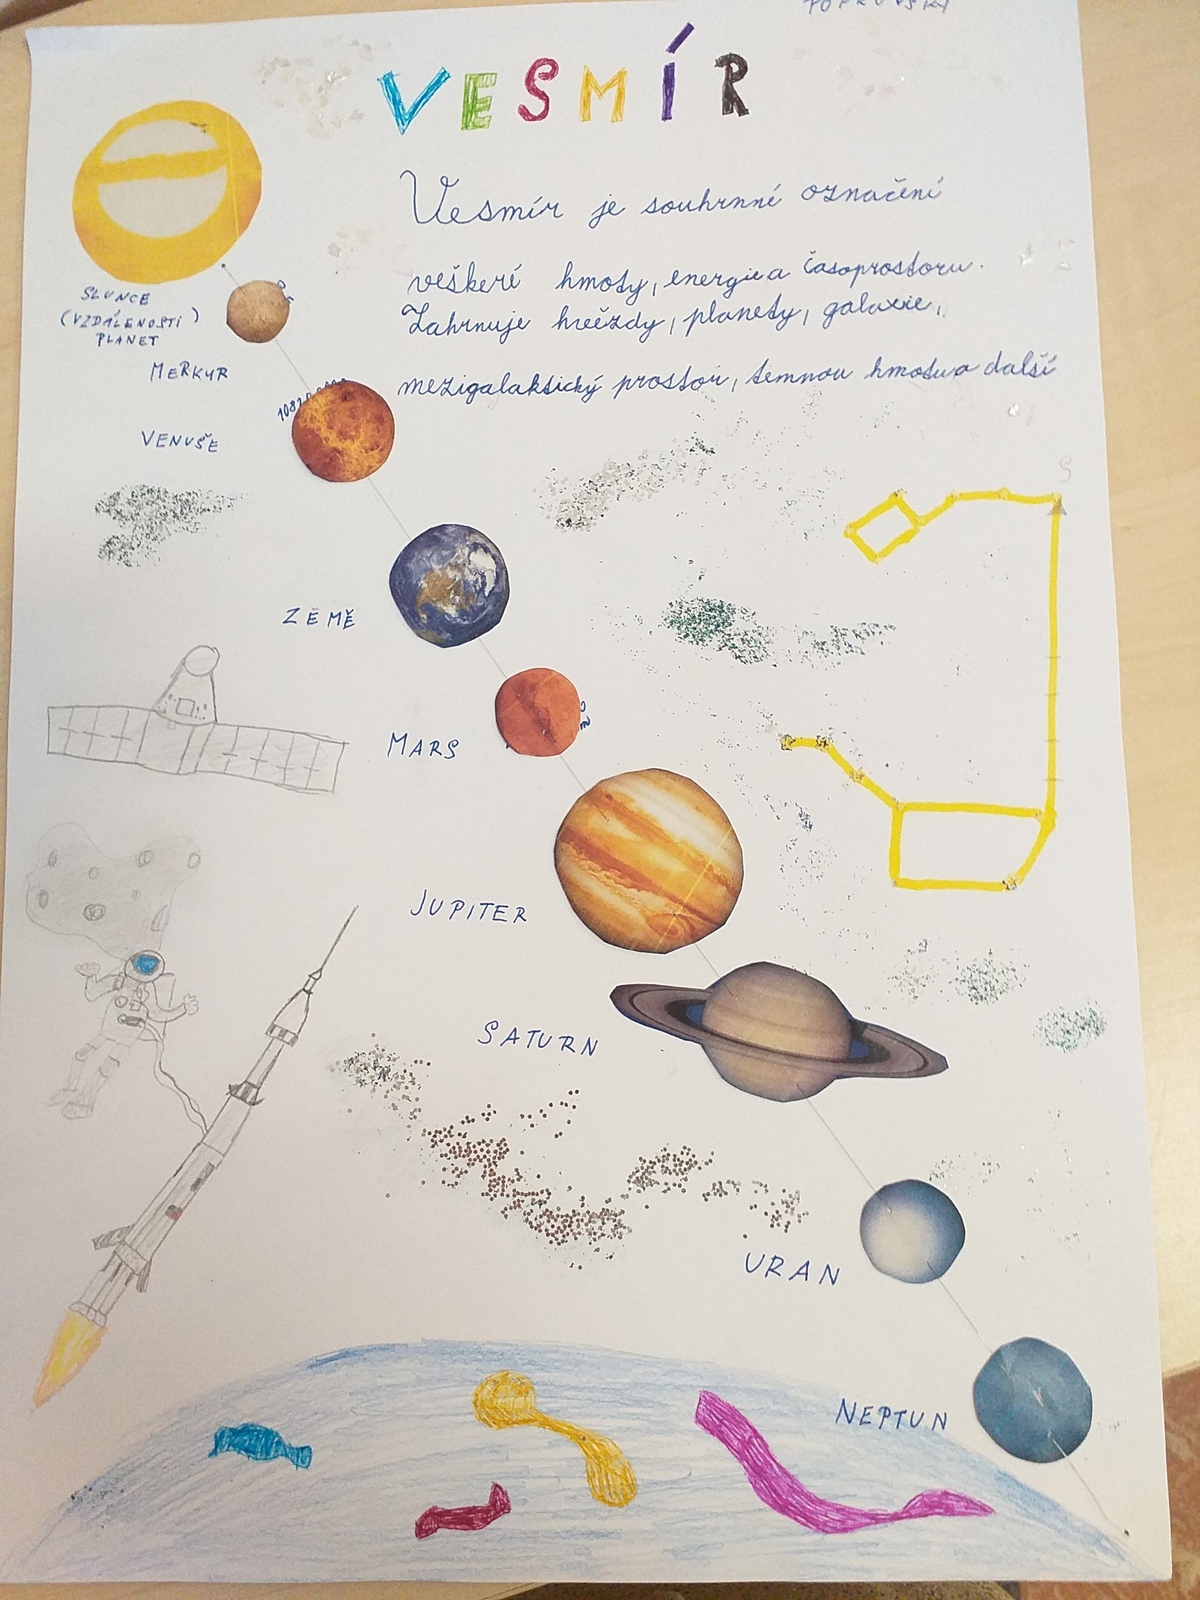 VESMÍR
Vesmír je souhrnné označení
veškeré hmoty, energie a časoprostoru.
Zahrnuje hvězdy, planety, galaxie,
mezigalaktický prostor, temnou hmotu a další
SLUNCE
(VZDÁLENOSTI)
PLANET
MERKUR
VENUŠE
ZEMĚ
MARS
JUPITER
SATURN
URAN
NEPTUN
S